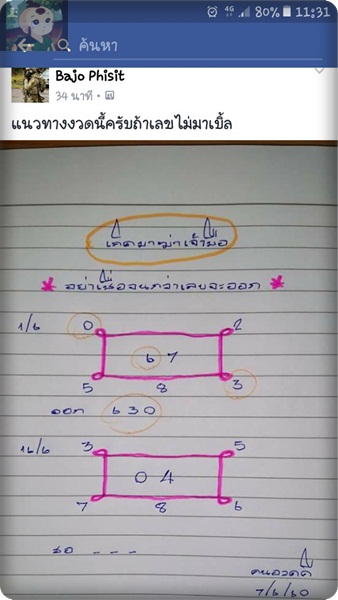 4G 80% 11:31
ค้นหา
Bajo Phisit
34 นาที •
แนวทางงวดนี้ครับถ้าเลขไม่มาเบิ้ล
อย่าเชื่อจนกว่าเลขจะออก
1/6
0 2
6 7
5 8 3
ออก 630
16/6
3 5
0 4
7 8 6
รอ - - -
7/6/60